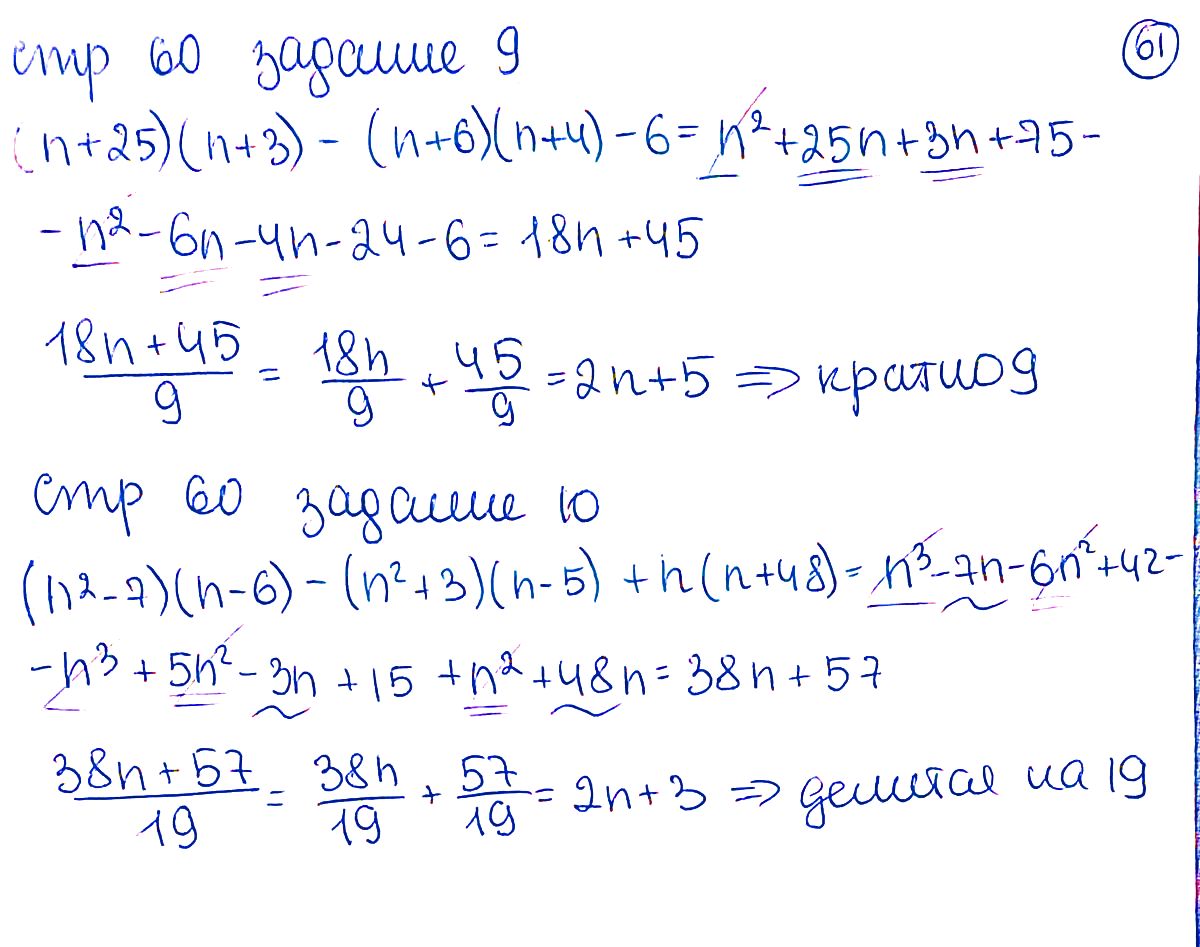 61
стр 60 задание 9
(n+25)(n+3) - (n+6)(n+4) - 6 = n² + 25n + 3n + 75 -
- n² - 6n - 4n - 24 - 6 = 18n + 45
(18n + 45)/9 = 18n/9 + 45/9 = 2n + 5 ⇒ кратно 9
стр 60 задание 10
(n² - 7)(n - 6) - (n² + 3)(n - 5) + n(n + 48) = n³ - 7n - 6n² + 42 -
- n³ + 5n² - 3n + 15 + n² + 48n = 38n + 57
(38n + 57)/19 = 38n/19 + 57/19 = 2n + 3 ⇒ делится на 19